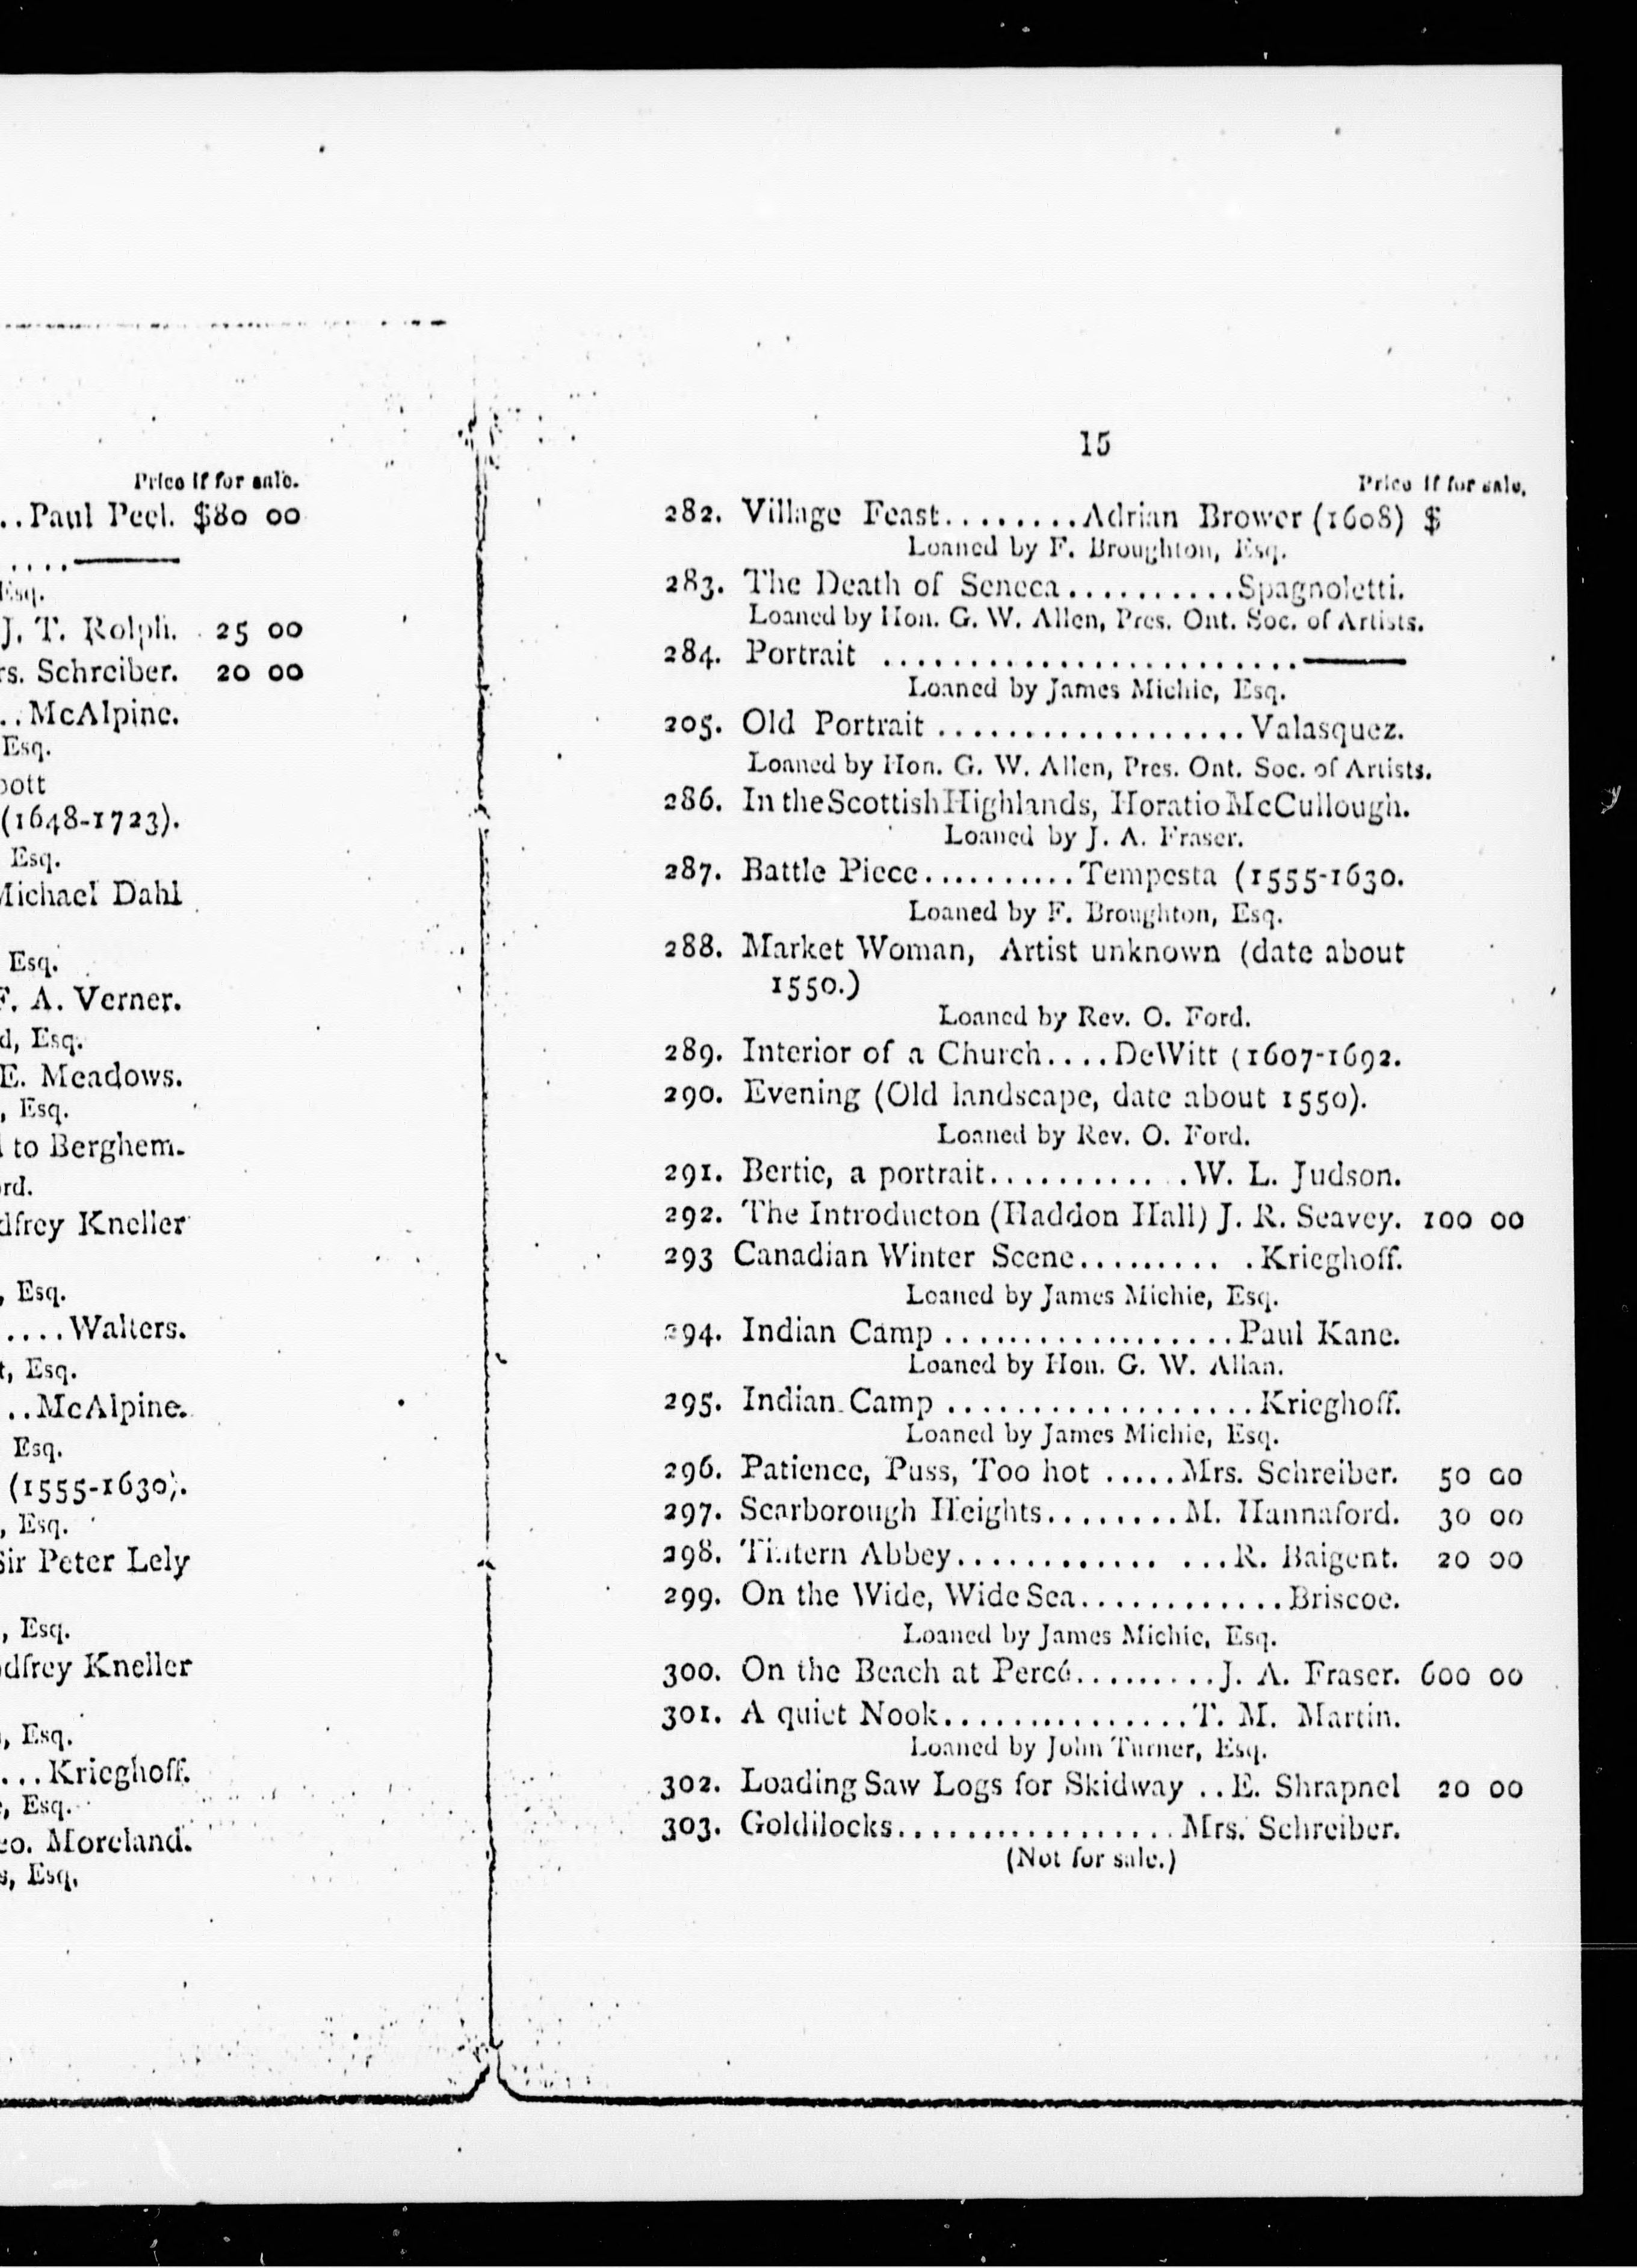 Price if for sale.
..Paul Peel. $80 00
....
Esq.
J. T. Rolph. 25 00
rs. Schreiber. 20 00
..McAlpine.
Esq.
bott
(1648-1723).
Esq.
Michael Dahl
Esq.
F. A. Verner.
d, Esq.
E. Meadows.
, Esq.
d to Berghem.
ord.
dfrey Kneller
, Esq.
....Walters.
t, Esq.
..McAlpine.
Esq.
(1555-1630).
, Esq.
Sir Peter Lely
, Esq.
odfrey Kneller
s, Esq.
...Krieghoff.
e, Esq.
eo. Moreland.
s, Esq.
15
Price if for sale.
282. Village Feast.........Adrian Brower (1608) $
Loaned by F. Broughton, Esq.
283. The Death of Seneca...........Spagnoletti.
Loaned by Hon. G. W. Allen, Pres. Ont. Soc. of Artists.
284. Portrait ........................
Loaned by James Michie, Esq.
205. Old Portrait ..................Valasquez.
Loaned by Hon. G. W. Allen, Pres. Ont. Soc. of Artists.
286. In the Scottish Highlands, Horatio McCullough.
Loaned by J. A. Fraser.
287. Battle Piece..........Tempesta (1555-1630.
Loaned by F. Broughton, Esq.
288. Market Woman, Artist unknown (date about
1550.)
Loaned by Rev. O. Ford.
289. Interior of a Church....DeWitt (1607-1692.
290. Evening (Old landscape, date about 1550).
Loaned by Rev. O. Ford.
291. Bertie, a portrait.............W. L. Judson.
292. The Introducton (Haddon Hall) J. R. Seavey. 100 00
293 Canadian Winter Scene......... .Krieghoff.
Loaned by James Michie, Esq.
294. Indian Camp .................Paul Kane.
Loaned by Hon. G. W. Allan.
295. Indian Camp ..................Krieghoff.
Loaned by James Michie, Esq.
296. Patience, Puss, Too hot .....Mrs. Schreiber. 50 00
297. Scarborough Heights........M. Hannaford. 30 00
298. Tintern Abbey............ ...R. Baigent. 20 00
299. On the Wide, Wide Sea............Briscoe.
Loaned by James Michie, Esq.
300. On the Beach at Percé.........J. A. Fraser. 600 00
301. A quiet Nook...............T. M. Martin.
Loaned by John Turner, Esq.
302. Loading Saw Logs for Skidway ..E. Shrapnel 20 00
303. Goldilocks.................Mrs. Schreiber.
(Not for sale.)